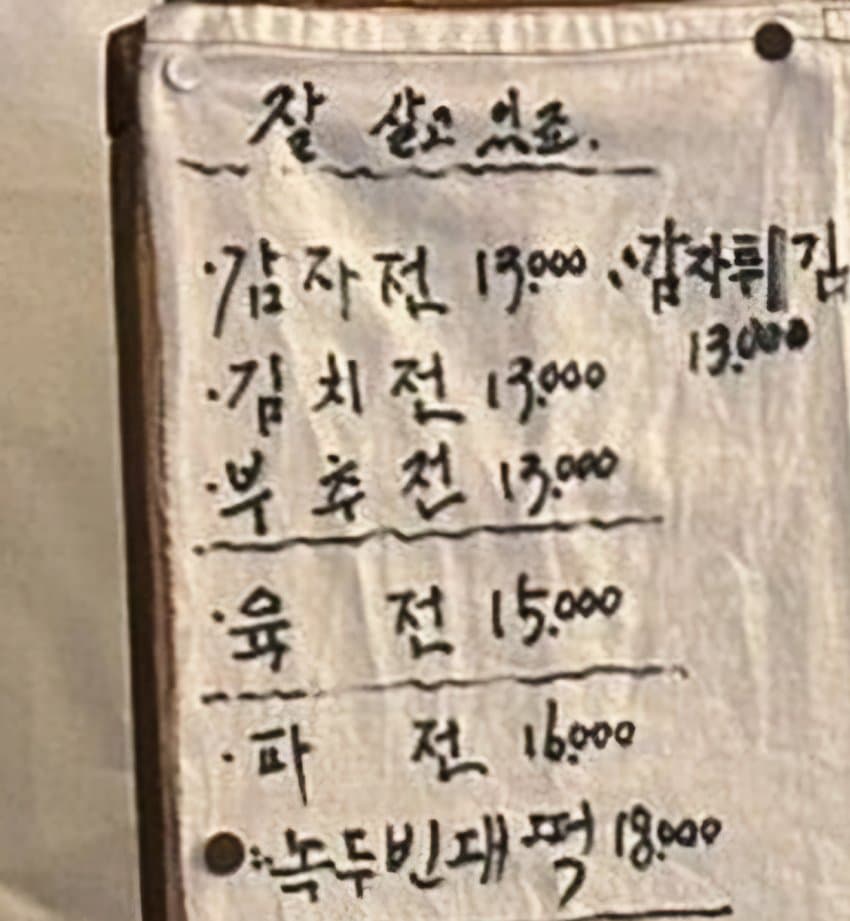 잘 살고 있죠.
·감자전 13.000 ·감자튀김
13.000
·김치전 13.000
·부추전 13.000
·육 전 15.000
·파 전 16.000
·녹두빈대떡 18.000